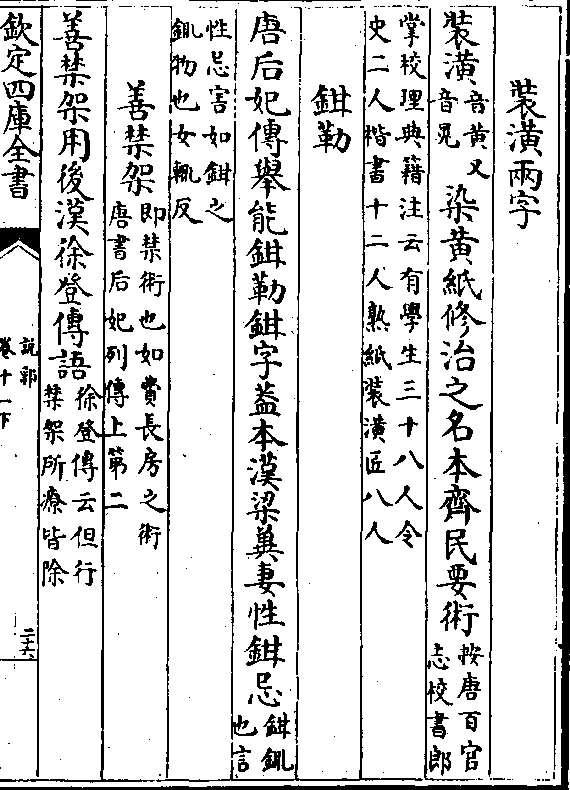 裝潢兩字
裝潢音黃又音晃染黃紙修治之名本齊民要術按唐百官志校書郎
掌校理典籍注云有學生三十八人令史二人楷書十二人熟紙裝潢匠八人
鉗勒
唐后妃傳舉能鉗勒鉗字葢本漢梁冀妻性鉗忌鉗鉔也言
性忌害如鉗之鉔物也女輒反
善禁架即禁術也如費長房之術唐書后妃列傳上第二
善禁架用後漢徐登傳語徐登傳云但行禁架所療皆除
欽定四庫全書
說郛
卷十一下
二六